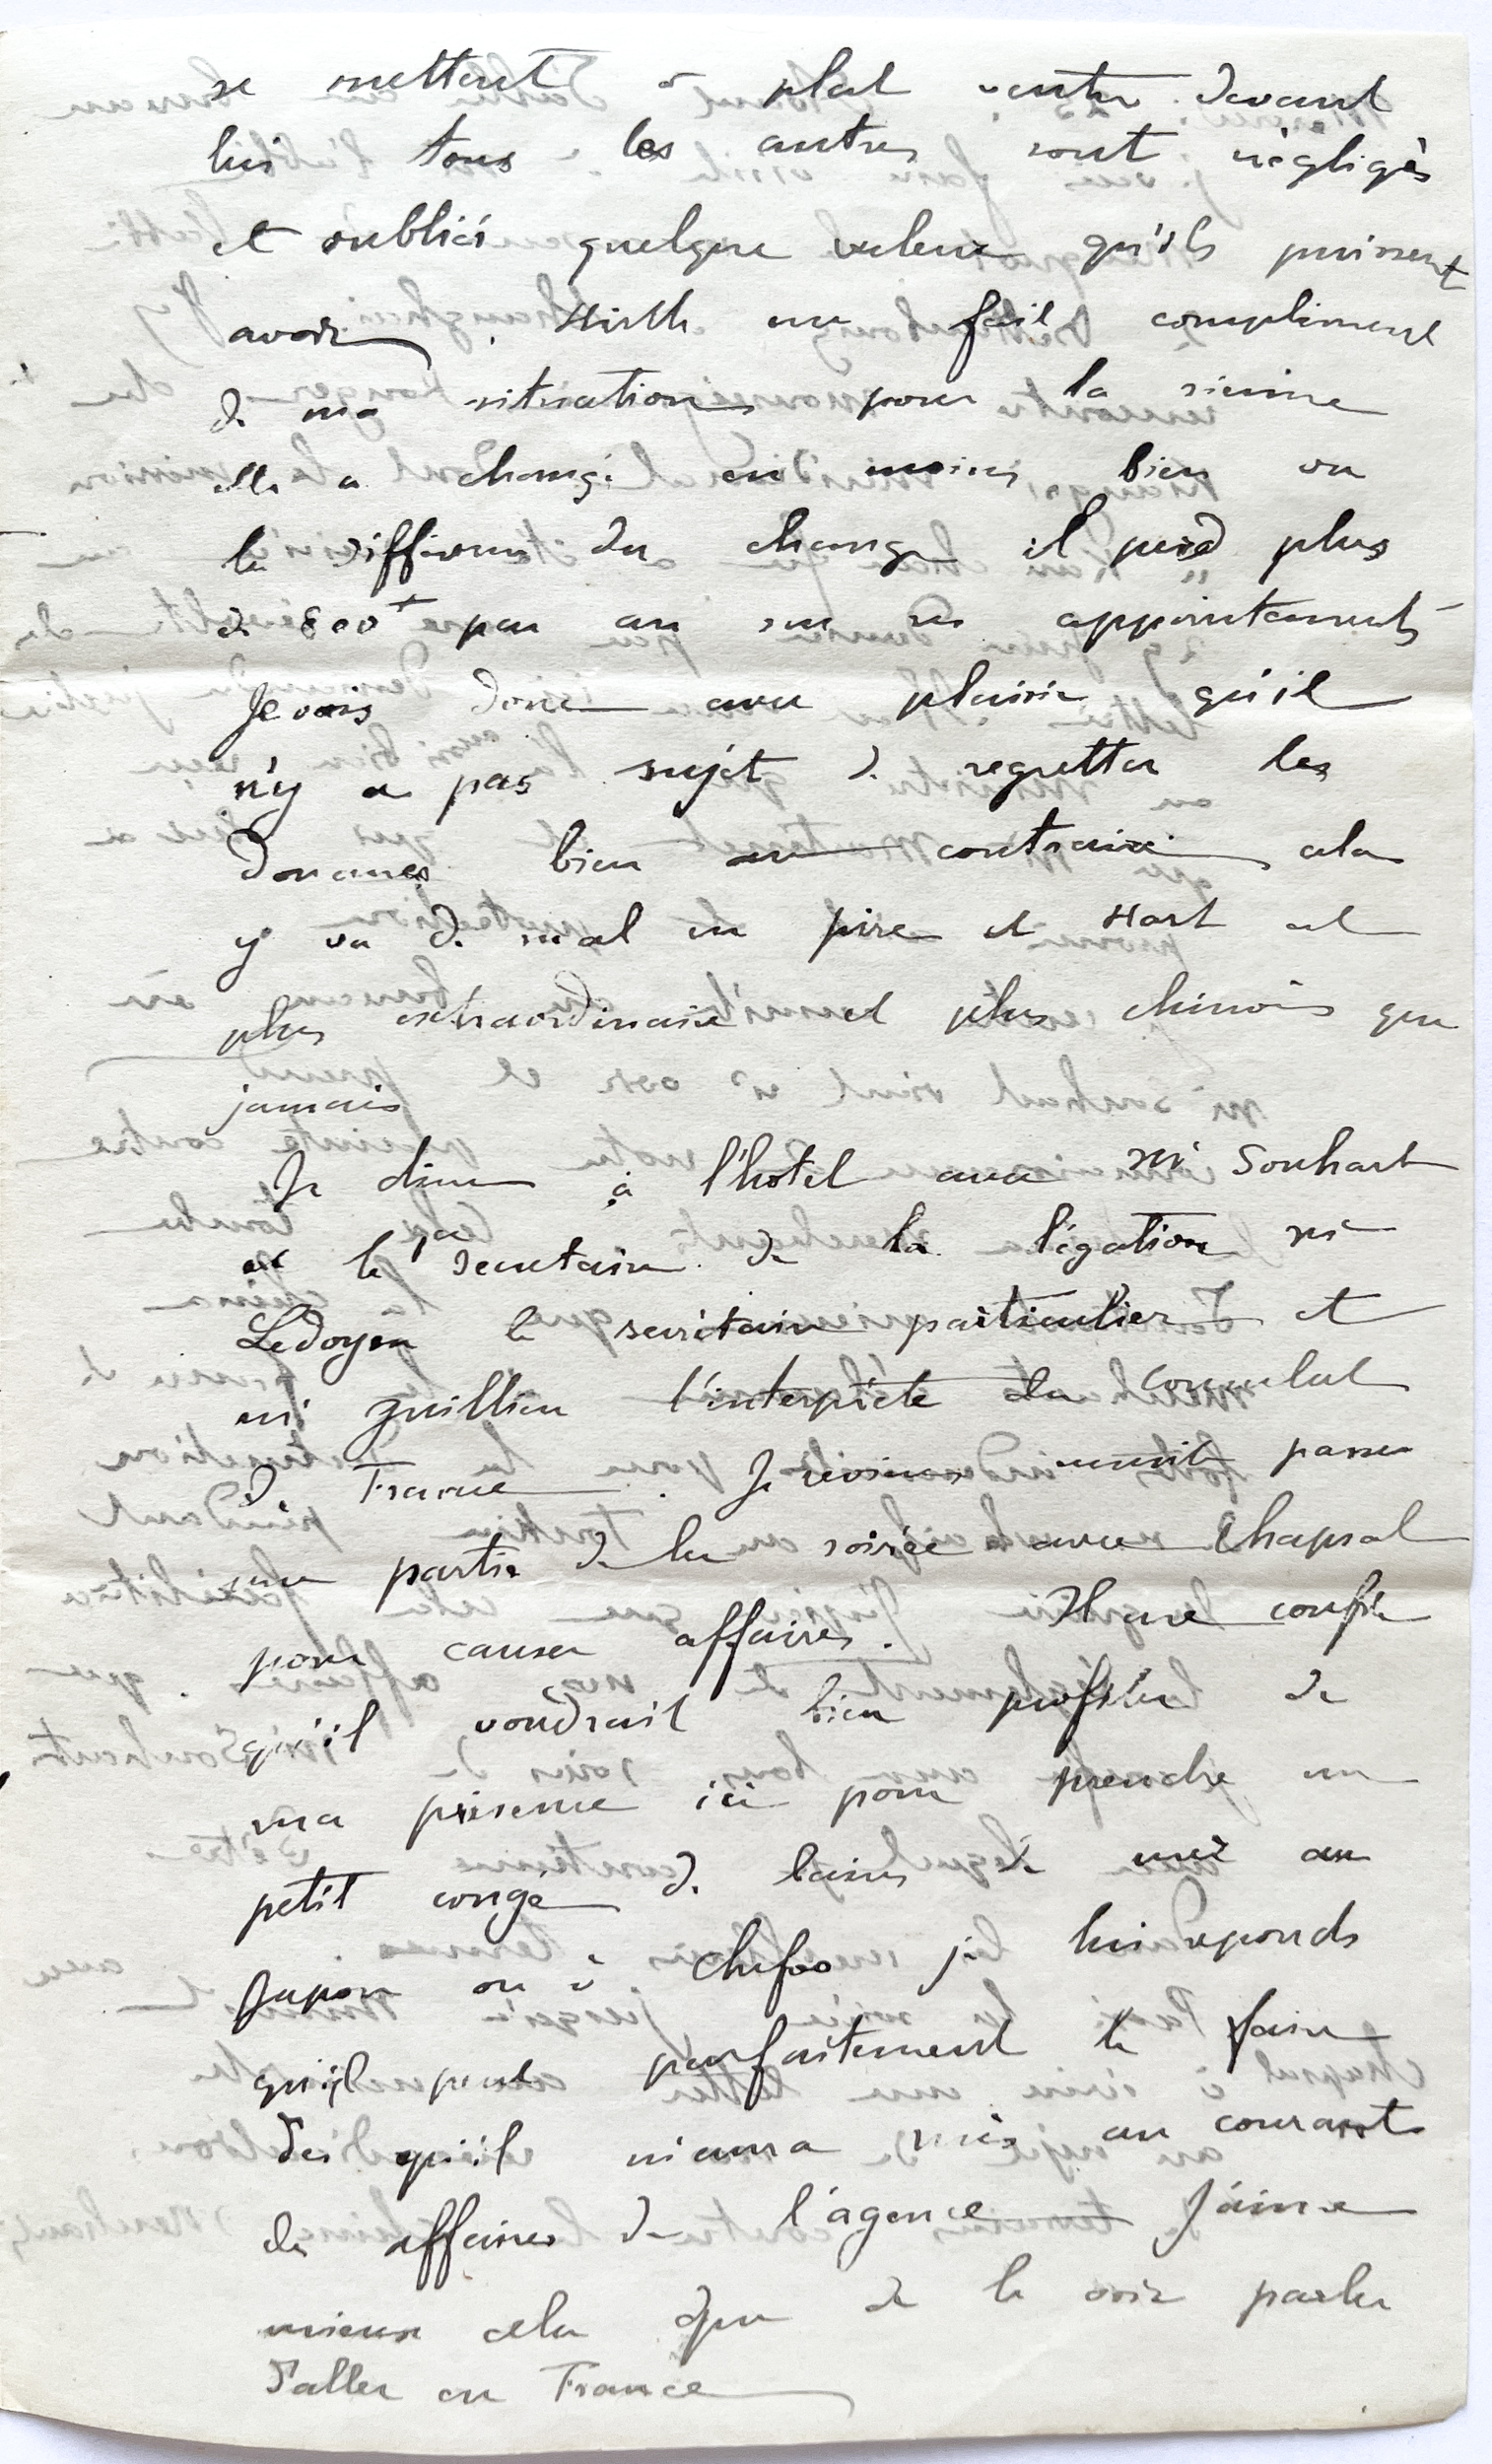 se mettent à plat ventre devant
lui tous les autres sont négligés
et oubliés quelque valeur qu'ils puissent
avoir. Hirth me fait compliment
de ma situation pour la sienne
elle a changé en moins bien vu
la différence du change il perd plus
de 800 par an sur ses appointements
Je vois donc avec plaisir qu'il
n'y a pas sujet de regretter les
Douanes bien au contraire cela
y va de mal en pire et Hart est
plus extraordinaire et plus chinois que
jamais
Je dine à l'hotel avec Mr Souhart
et le 1er Secretaire de la légation Mr
Ledoyen le secrétaire particulier et
Mr Guillien l'interprète du Consulat
de France. Je reviens ensuite passer
une partie de la soirée avec Chapsal
pour causer affaires. Il me confie
qu'il voudrait bien profiter de
ma présence ici pour prendre un
petit congé de bains de mer au
Japon ou à Chefoo je lui réponds
qu'il peut parfaitement le faire
dès qu'il m'aura mis au courant
des affaires de l'agence J'aime
mieux cela que de le voir parler
d'aller en France